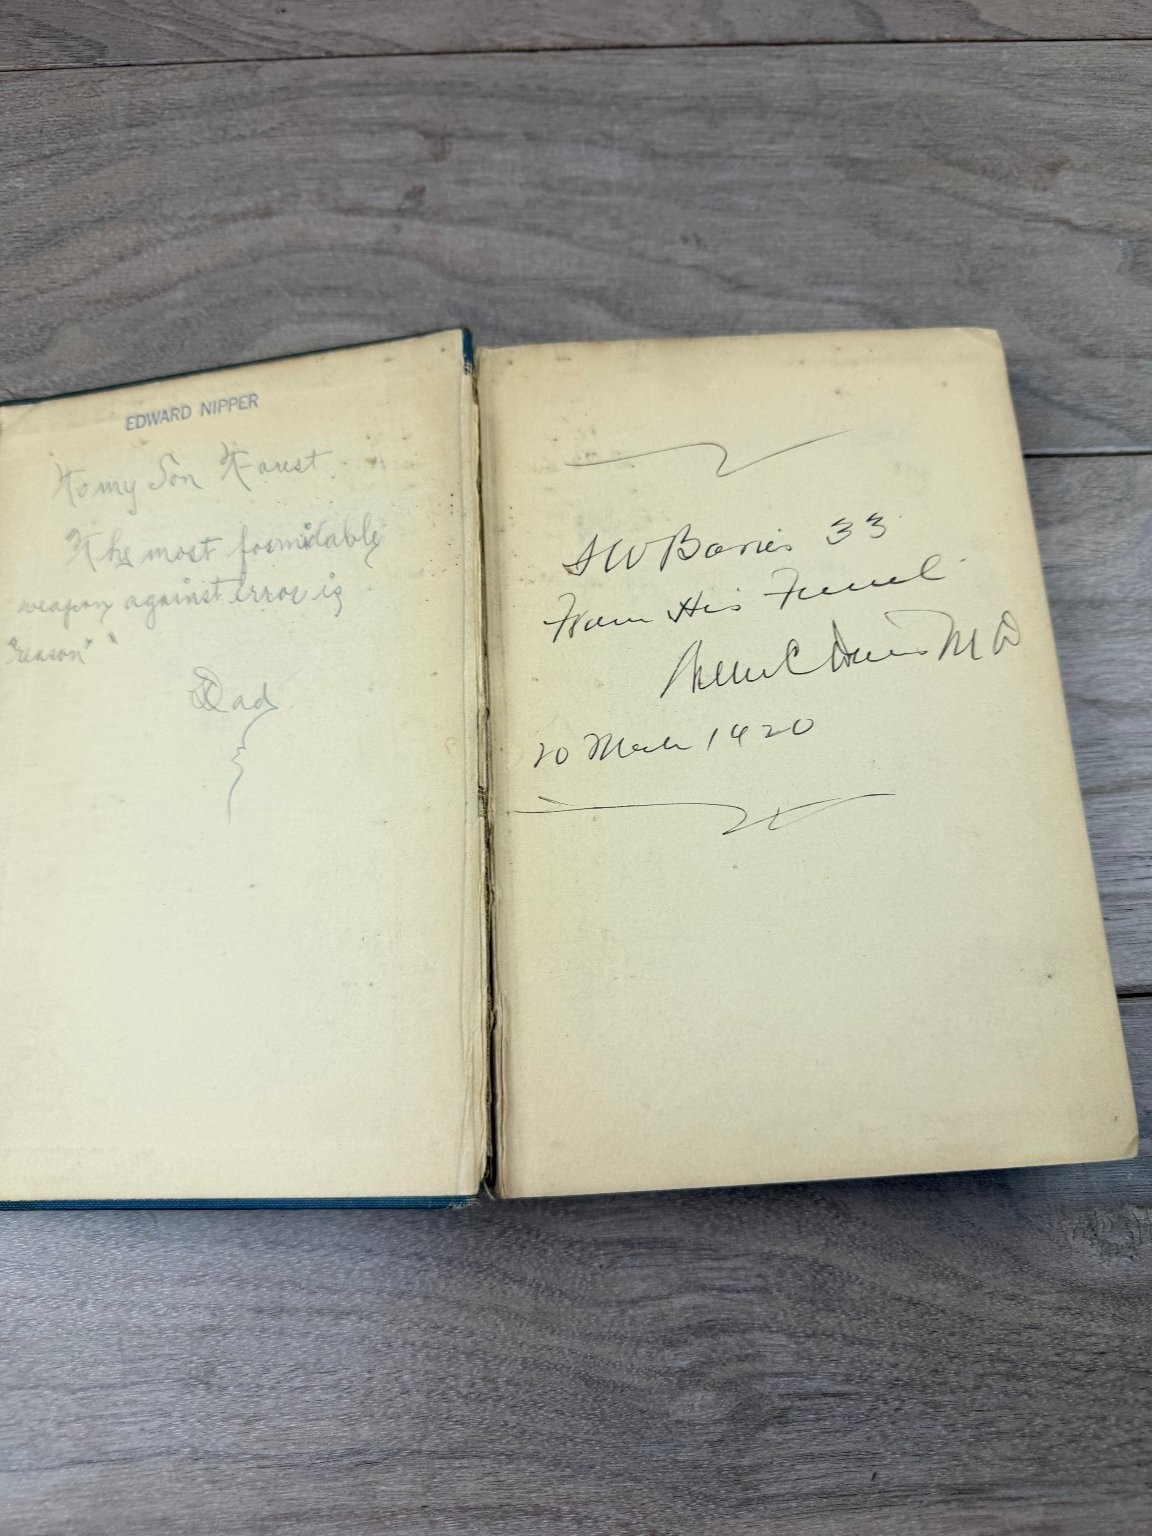 EDWARD NIPPER
To my Son Forest
The most formidable
weapon against error is
"reason"
Dad
W Barnes 33
From His Friend
C Davis MD
20 March 1920